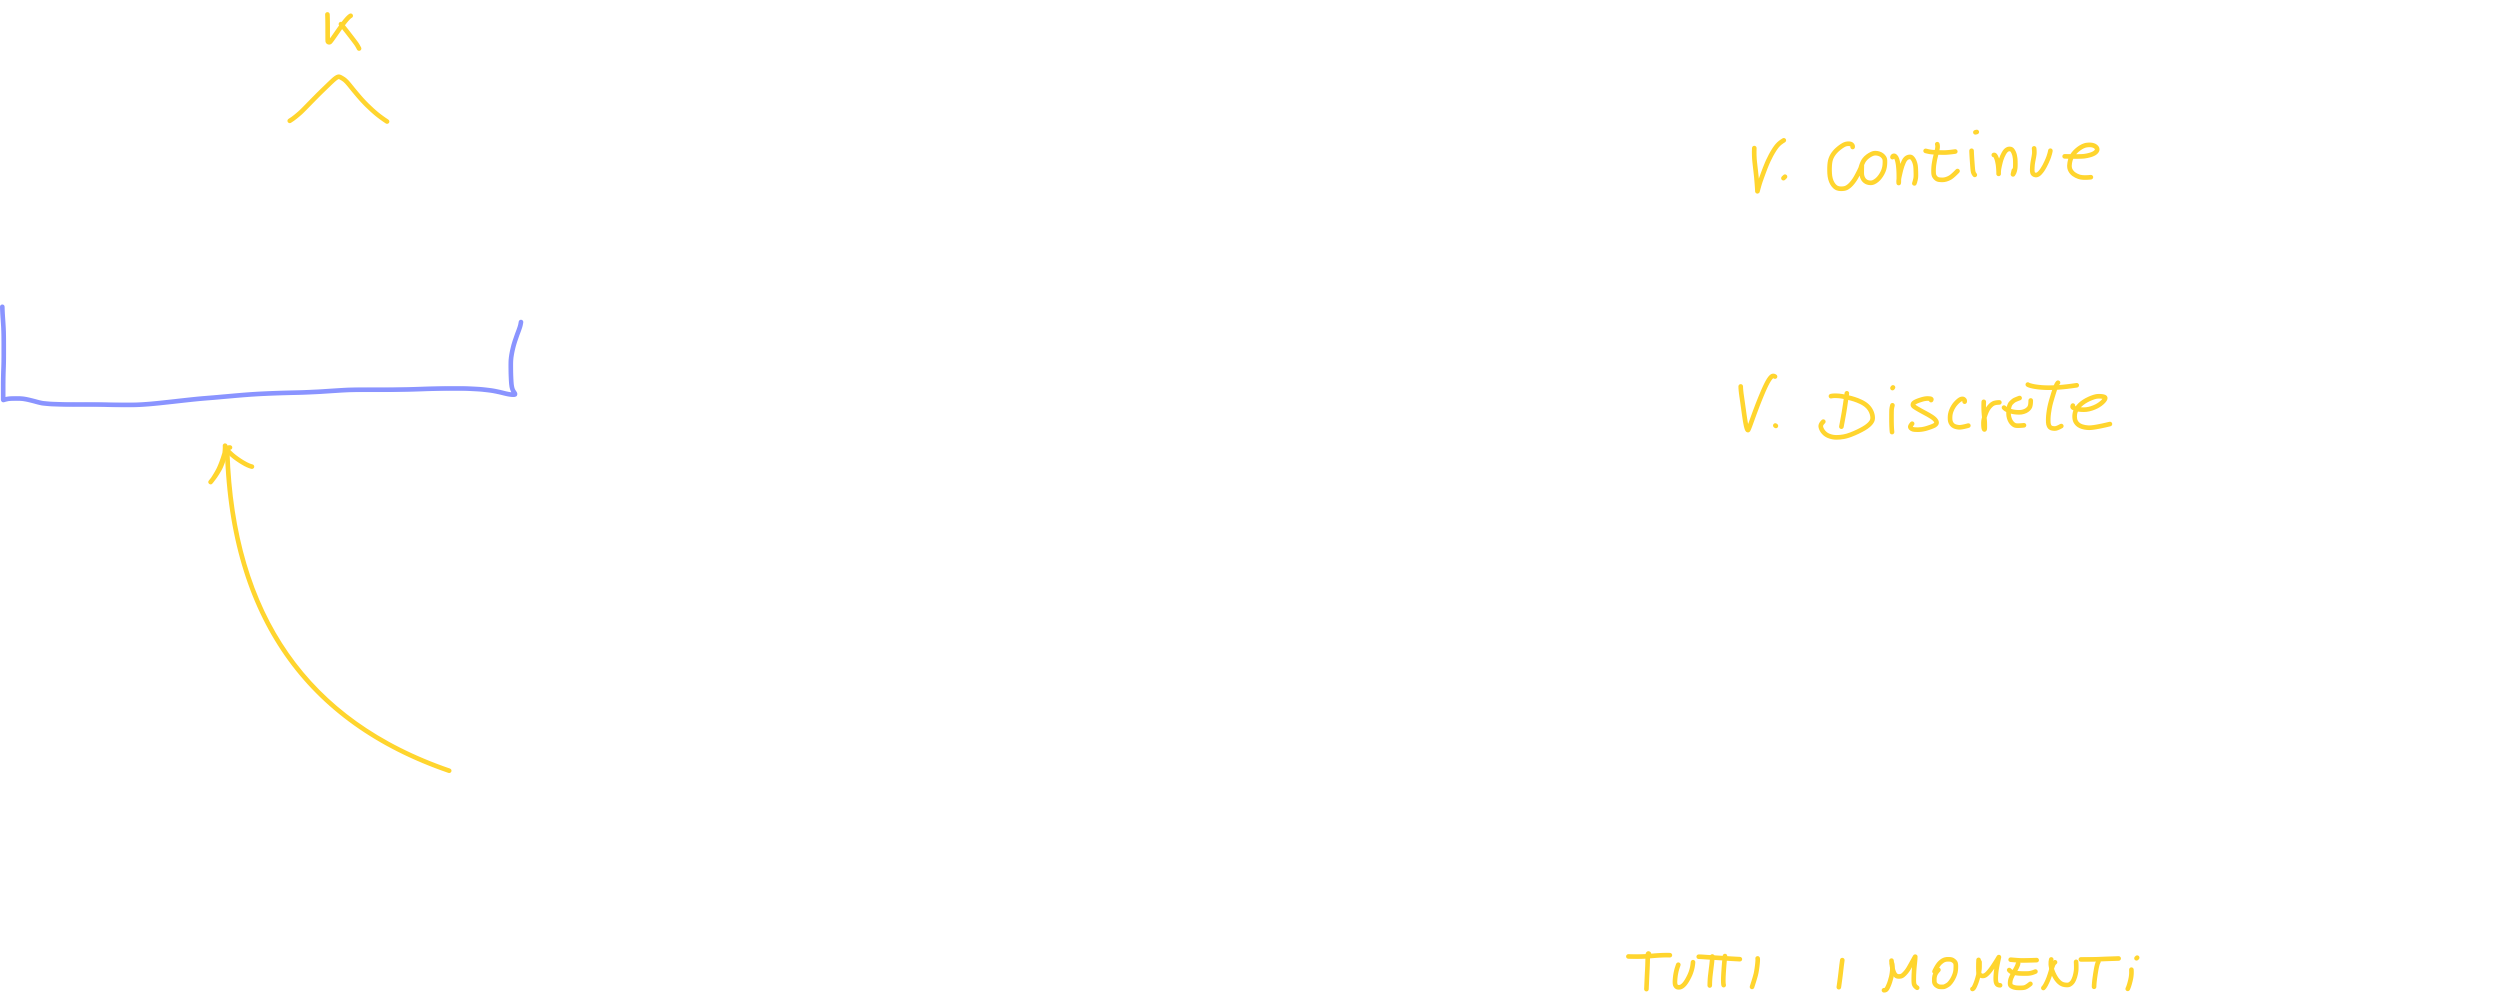 K
V. Continue
V. Discrete
TUTTI I MOMENTI